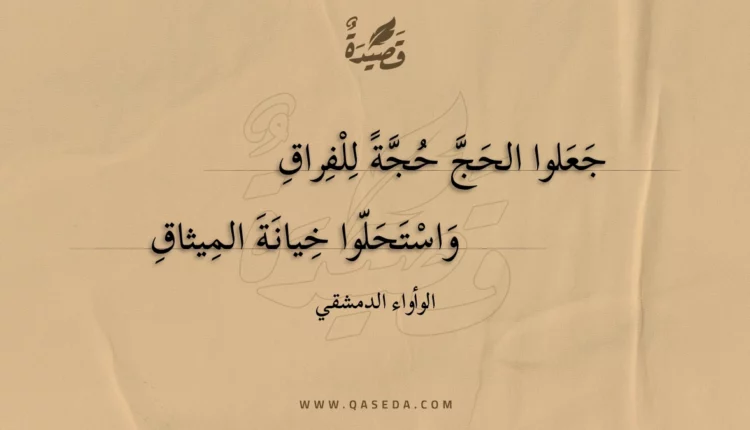 قَصِيْدَةٌ
جَعَلوا الحَجَّ حُجَّةً لِلْفِراقِ
وَاسْتَحَلّوا خِيانَةَ المِيثاقِ
الوأواء الدمشقي
WWW.QASEDA.COM